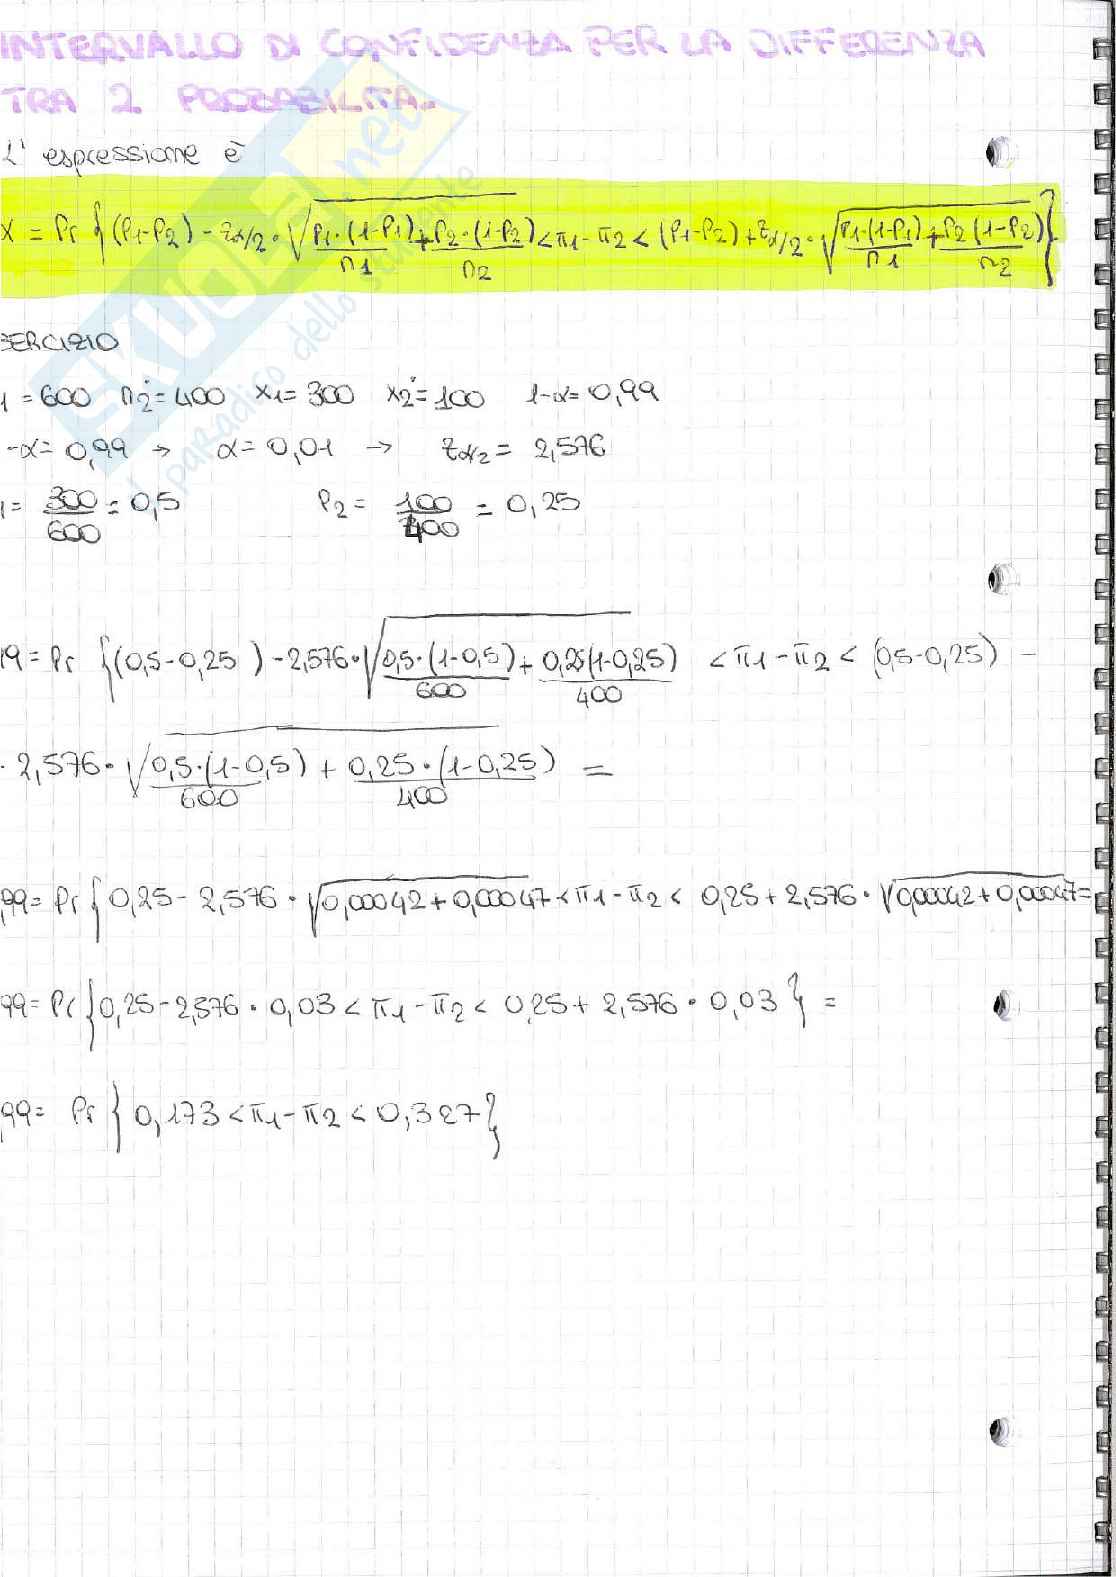 INTERVALLO DI CONFIDENZA PER LA DIFFERENZA
TRA 2 PROBABILITA.
L' espressione è
α = Pr { (P1-P2) - zα/2 · √(P1·(1-P1)/n1 + P2·(1-P2)/n2) < π1 - π2 < (P1-P2) + zα/2 · √(P1·(1-P1)/n1 + P2(1-P2)/n2) }
SERCIZIO
1 = 600 n2 = 400 x1 = 300 x2 = 100 1-α = 0,99
-α = 0,99 → α = 0,01 → zα/2 = 2,576
1 = 300/600 = 0,5 P2 = 100/400 = 0,25
99 = Pr { (0,5-0,25) - 2,576·√(0,5·(1-0,5)/600 + 0,25(1-0,25)/400) < π1 - π2 < (0,5-0,25) -
· 2,576·√(0,5·(1-0,5)/600 + 0,25·(1-0,25)/400) =
,99 = Pr { 0,25 - 2,576 · √0,00042 + 0,00047 < π1 - π2 < 0,25 + 2,576 · √0,00042 + 0,00047 =
99 = Pr { 0,25 - 2,576 · 0,03 < π1 - π2 < 0,25 + 2,576 · 0,03 } =
,99 = Pr { 0,173 < π1 - π2 < 0,327 }
SKUOLA.net
il paradiso dello studente